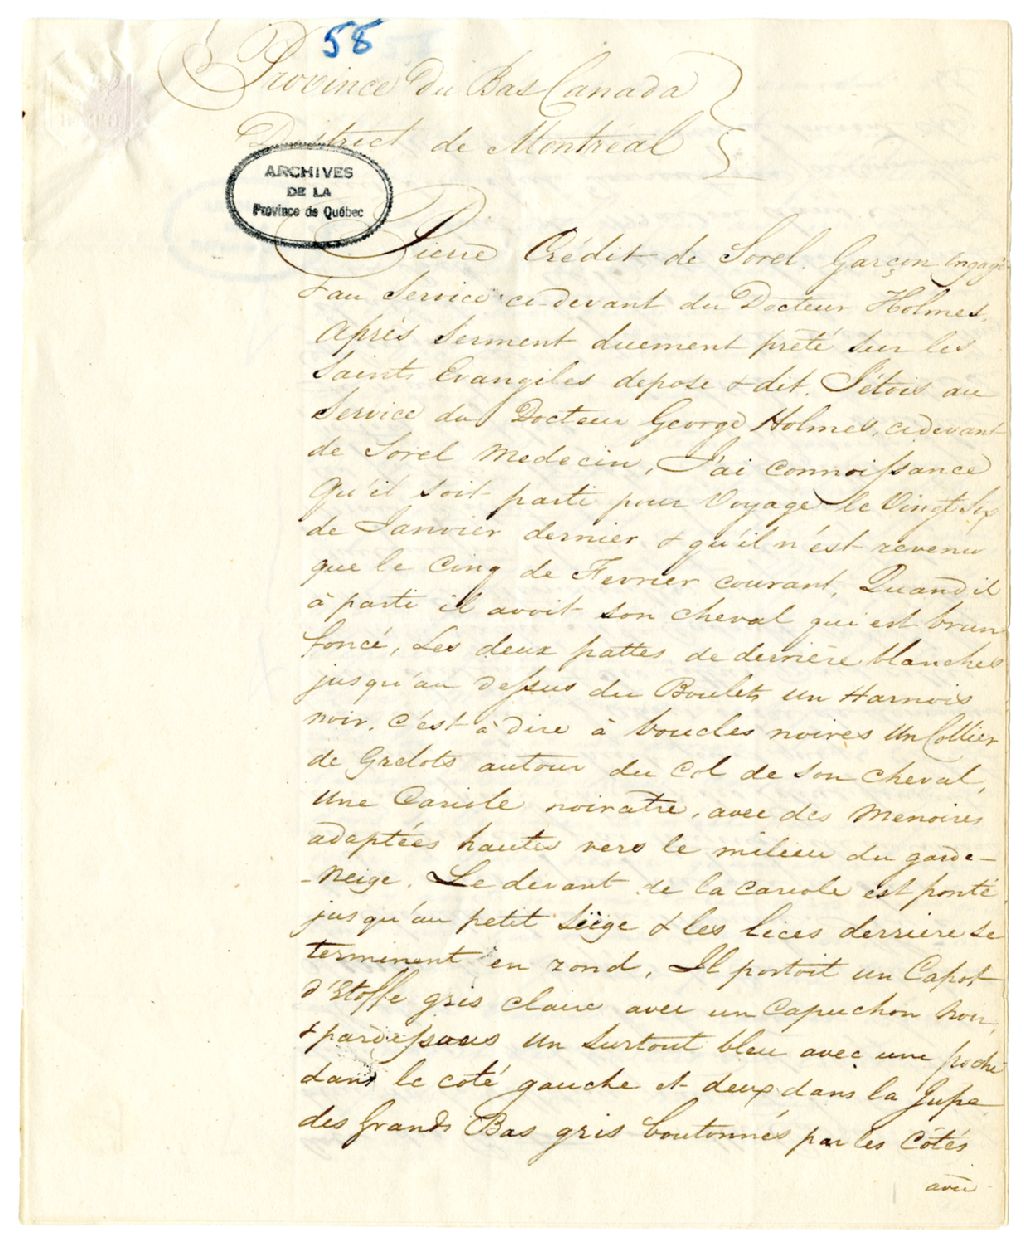 58
Province du Bas Canada
District de Montréal
ARCHIVES
DE LA
Province de Québec
Pierre Crédit de Sorel. Garçon Engagé
au Service ci-devant du Docteur Holmes.
Après serment duement prêté sur les
Saints Evangiles depose & dit. J'étois au
Service du Docteur George Holmes, ci devant
de Sorel Medecin, J'ai connoissance
qu'il soit parti pour Voyage le Vingt Six
de Janvier dernier & qu'il n'ést revenu
que le Cinq de Fevrier courant, Quand il
à parti il avoit son cheval qui est brun
foncé, Les deux pattes de derrière blanches
jusqu'au dessus du Boulet, un Harnois
noir, c'est à dire à boucles noires Un Collier
de Grelots autour du Col de son cheval,
Une Cariole noiratre, avec des Menoires
adaptées hautes vers le milieu du garde-
-neige. Le devant de la Cariole est ponté
jusqu'au petit siège & les lices derriere se
terminent en rond, Il portoit un Capot
d'Etoffe gris claire avec un Capuchon noir,
& pardessous un surtout bleu avec une poche
dans le coté gauche et deux dans la Jupe
des Grands Bas gris boutonnés par les côtés
avec